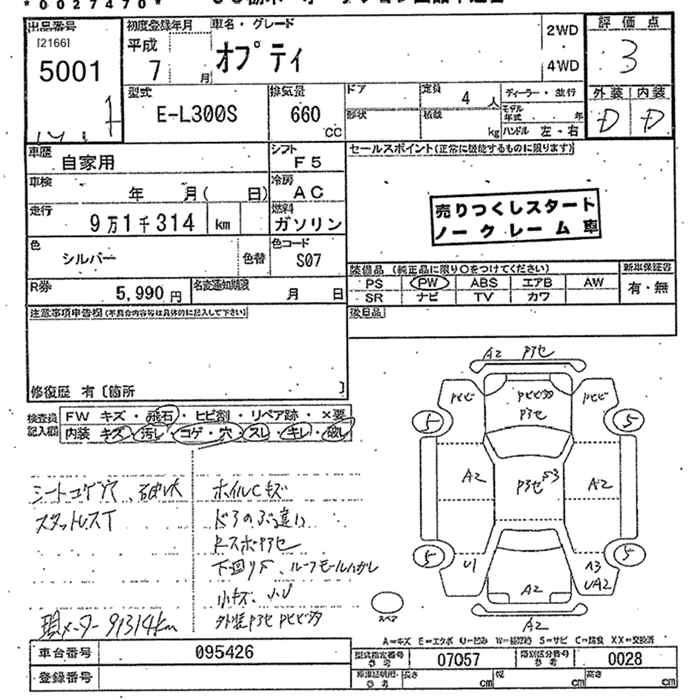 *0027470*
出品番号
[2166]
5001
初度登録年月
平成
7 月
車名・グレード
オプティ
2WD
4WD
評価点
3
外装 内装
D D
型式
E-L300S
排気量
660
CC
ドア
形状
定員
4 人
積載
kg
ディーラー・並行
モデル年式 年
ハンドル 左・右
車歴
自家用
シフト
F5
車検
年 月( 日)
冷房
AC
走行
9万1千314 km
燃料
ガソリン
色
シルバー
色替
色コード
S07
R券
5,990 円
名変通知期限
月 日
セールスポイント(正常に機能するものに限ります)
売りつくしスタート
ノークレーム車
装備品 (純正品に限り○をつけてください)
PS PW ABS エアB AW
SR ナビ TV カワ
新車保証書
有・無
後日品
注意事項申告欄(不具合内容等は具体的に記入して下さい)
修復歴 有〔箇所 〕
検査員記入欄
FW キズ・飛石・ヒビ割・リペア跡・×要
内装 キズ・汚レ・コゲ・穴・スレ・キレ・破レ
シートコゲ穴、破レ大
スタットレスT
現メーター91314km
ホイルCキズ
下回りサ、ルーフモールハガレ
小キズ、小U
A2 Pアセ
Pアセ
A2
PアセS3
A2
5
5
5
5
U1
A3
UA2
A2
A2
スペア
A=キズ E=エクボ U=凹み W=補修跡 S=サビ C=腐食 XX=交換済
車台番号
095426
登録番号
型式指定番号
参考
07057
類別区分番号
参考
0028
車庫証明用・参考
長さ cm
幅 cm
高さ cm